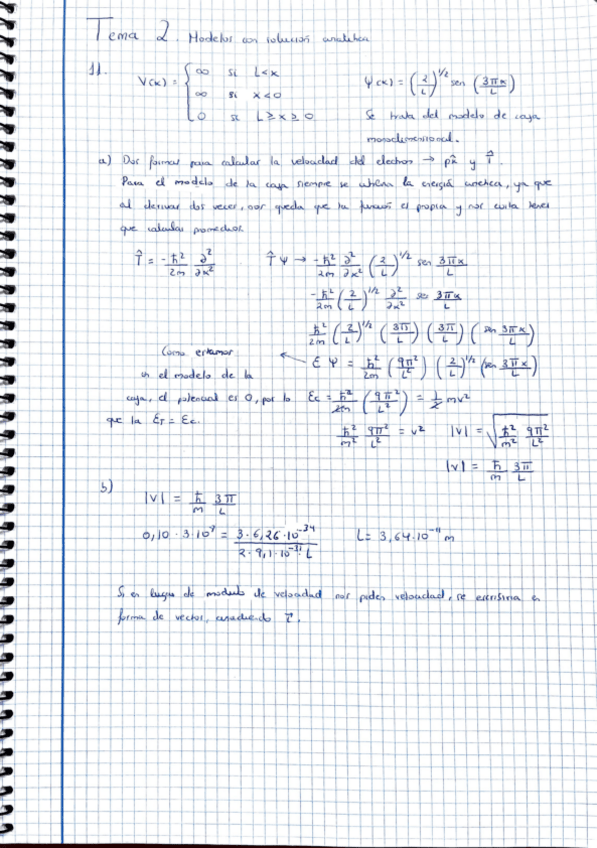 Tema 2. Modelos con solución analítica
11.
V(x) = { ∞ si L<x
∞ si x<0
0 si L≥x≥0
Ψ(x) = (2/L)^1/2 sen (3πx/L)
Se trata del modelo de caja
monodimensional.
a) Dos formas para calcular la velocidad del electron → p̂x y T̂.
Para el modelo de la caja siempre se utiliza la energía cinética, ya que
al derivar dos veces, nos queda que la función es propia y nos evita tener
que calcular promedios.
T̂ = -ħ²/2m ∂²/∂x²
T̂Ψ → -ħ²/2m ∂²/∂x² (2/L)^1/2 sen 3πx/L
-ħ²/2m (2/L)^1/2 ∂²/∂x² sen 3πx/L
ħ²/2m (2/L)^1/2 (3π/L) (3π/L) (sen 3πx/L)
Como estamos
en el modelo de la
caja, el potencial es 0, por lo
que la ET = Ec.
E Ψ = ħ²/2m (9π²/L²) (2/L)^1/2 (sen 3πx/L)
Ec = ħ²/2m (9π²/L²) = 1/2 mv²
ħ²/m² 9π²/L² = v² |v| = √(ħ²/m² 9π²/L²)
|v| = ħ/m 3π/L
b)
|v| = ħ/m 3π/L
0,10 · 3·10⁸ = 3 · 6,26 · 10⁻³⁴ / 2 · 9,1 · 10⁻³¹ · L L = 3,64·10⁻¹¹ m
Si en lugar de modulo de velocidad nos piden velocidad, se escribiria en
forma de vector, añadiendo